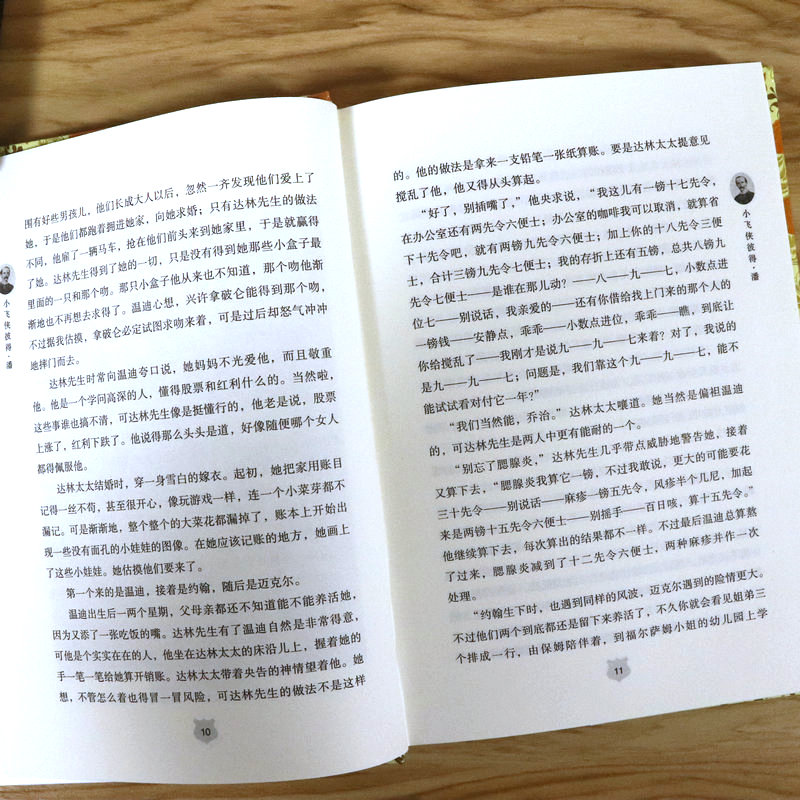 围有好些男孩儿，他们长成大人以后，忽然一齐发现他们爱上了
她，于是他们都跑着拥进她家，向她求婚；只有达林先生的做法
不同，他雇了一辆马车，抢在他们前头来到她家里，于是就赢得
了她。达林先生得到了她的一切，只是没有得到她那些小盒子最
里面的一只和那个吻。那只小盒子他从来也不知道，那个吻他渐
渐地也不再想去求得了。温迪心想，兴许拿破仑能得到那个吻，
不过据我估摸，拿破仑必定试图求吻来着，可是过后却怒气冲冲
地摔门而去。
达林先生时常向温迪夸口说，她妈妈不光爱他，而且敬重
他。他是一个学问高深的人，懂得股票和红利什么的。当然啦，
这些事谁也搞不清，可达林先生像是挺懂行的，他老是说，股票
上涨了，红利下跌了。他说得那么头头是道，好像随便哪个女人
都得佩服他。
达林太太结婚时，穿一身雪白的嫁衣。起初，她把家用账目
记得一丝不苟，甚至很开心，像玩游戏一样，连一个小菜芽都不
漏记。可是渐渐地，整个整个的大菜花都漏掉了，账本上开始出
现一些没有面孔的小娃娃的图像。在她应该记账的地方，她画上
了这些小娃娃。她估摸他们要来了。
第一个来的是温迪，接着是约翰，随后是迈克尔。
温迪出生后一两个星期，父母亲都还不知道能不能养活她，
因为又添了一张吃饭的嘴。达林先生有了温迪自然是非常得意，
可他是个实实在在的人，他坐在达林太太的床沿儿上，握着她的
手一笔一笔给她算开销账。达林太太带着央告的神情望着他。她
想，不管怎么着也得冒一冒风险，可达林先生的做法不是这样
10
小飞侠彼得·潘
的。他的做法是拿来一支铅笔一张纸算账。要是达林太太提意见
搅乱了他，他又得从头算起。
“好了，别插嘴了，”他央求说，“我这儿有一镑十七先令，
在办公室还有两先令六便士；办公室的咖啡我可以取消，就算省
下十先令吧，就有两镑九先令六便士；加上你的十八先令三便
士，合计三镑九先令七便士；我的存折上还有五镑，总共八镑九
先令七便士——是谁在那儿动？——八——九——七，小数点进
位七——别说话，我亲爱的——还有你借给找上门来的那个人的
一镑钱——安静点，乖乖——小数点进位，乖乖——瞧，到底让
你给搅乱了——我刚才是说九——九——七来着？对了，我说的
是九——九——七；问题是，我们靠这个九——九——七，能不
能试试看对付它一年？”
“我们当然能，乔治。”达林太太嚷道。她当然是偏袒温迪
的，可达林先生是两人中更有能耐的一个。
“别忘了腮腺炎，”达林先生几乎带点威胁地警告她，接着
又算下去，“腮腺炎我算它一镑，不过我敢说，更大的可能要花
三十先令——别说话——麻疹一镑五先令，风疹半个几尼，加起
来是两镑十五先令六便士——别摇手——百日咳，算十五先令。”
他继续算下去，每次算出的结果都不一样。不过最后温迪总算熬
了过来，腮腺炎减到了十二先令六便士，两种麻疹并作一次
处理。
“约翰生下时，也遇到同样的风波，迈克尔遇到的险情更大。
不过他们两个到底都还是留下来养活了，不久你就会看见姐弟三
个排成一行，由保姆陪伴着，到福尔萨姆小姐的幼儿园上学
11
小飞侠彼得·潘